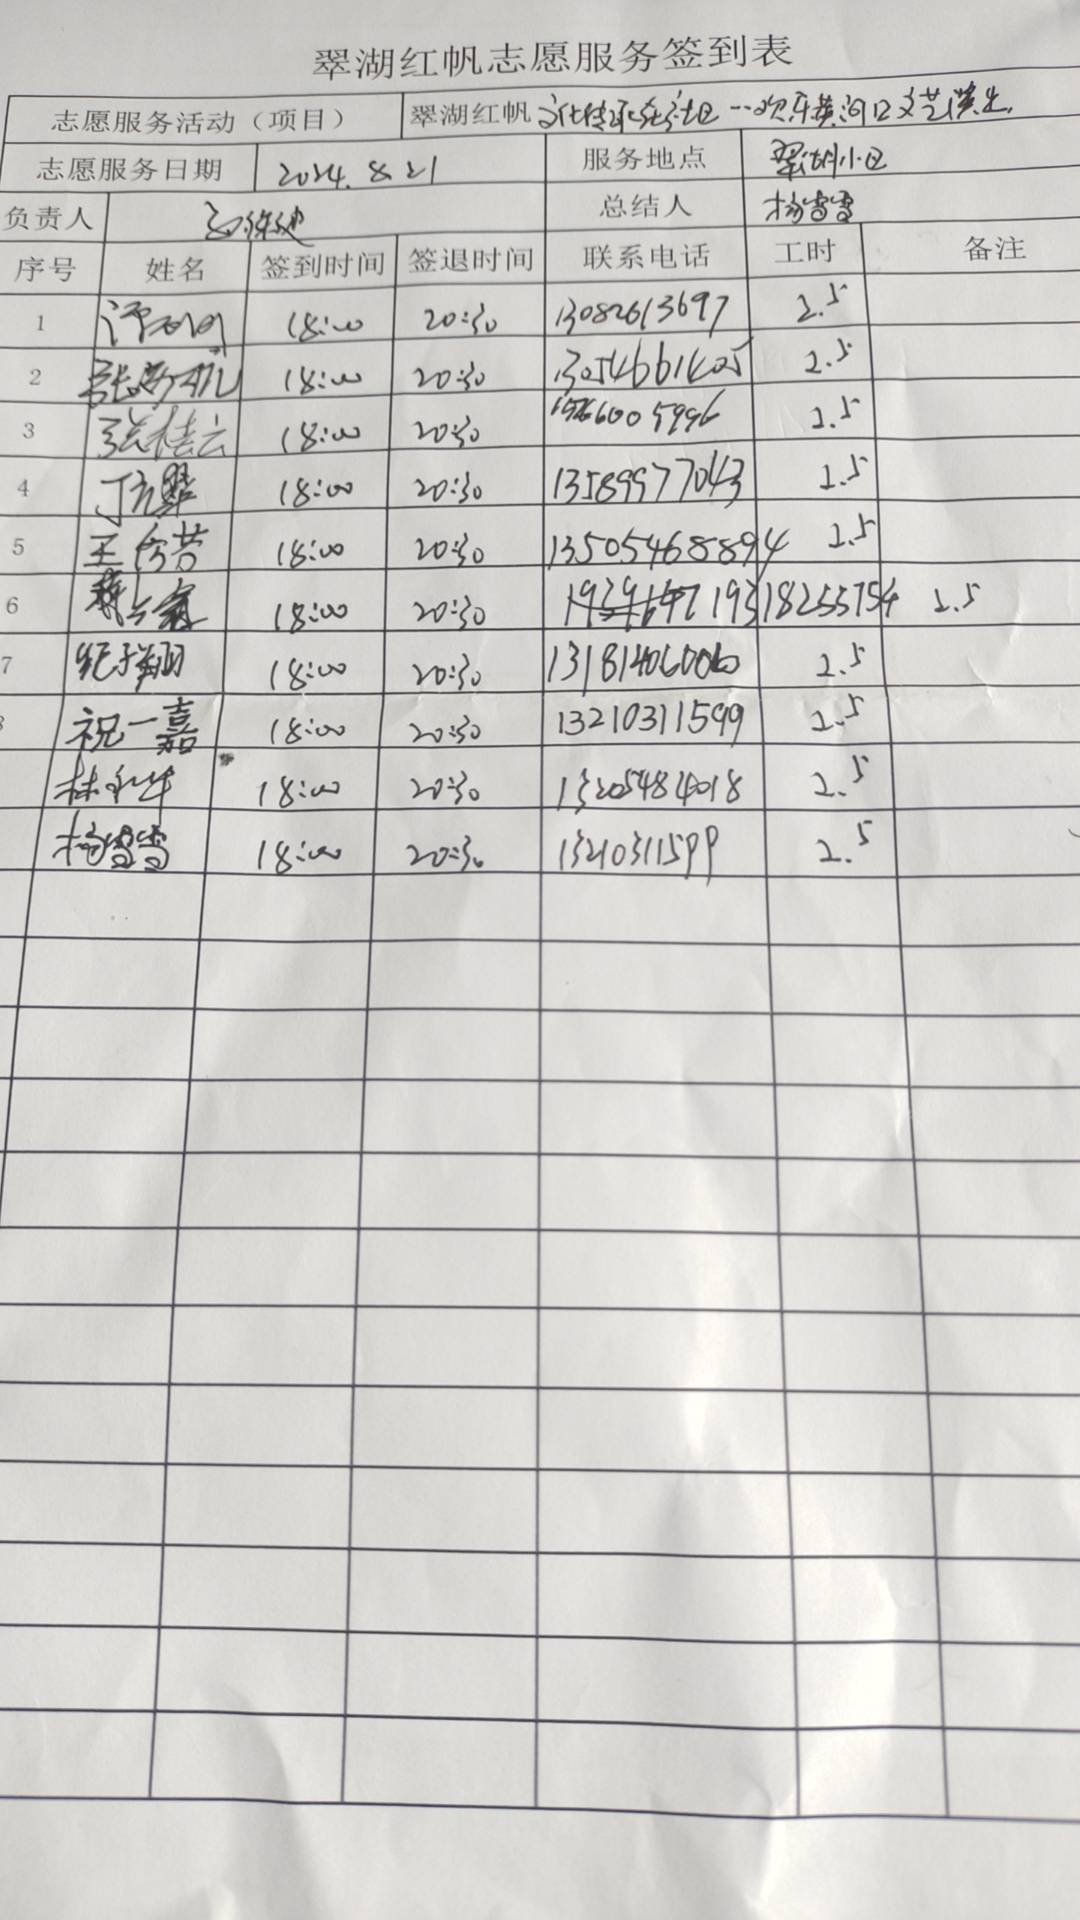 翠湖红帆志愿服务签到表
志愿服务活动（项目） 翠湖红帆文化传承在社区--欢乐黄河口文艺演出
志愿服务日期 2024.8.21 服务地点 翠湖小区
负责人 总结人 杨雪雪
序号 姓名 签到时间 签退时间 联系电话 工时 备注
1 18:00 20:30 13082613697 2.5
2 18:00 20:30 13054661405 2.5
3 张桂云 18:00 20:30 2.5
4 18:00 20:30 13589977043 2.5
5 王秀芳 18:00 20:30 135054688894 2.5
6 18:00 20:30 19318255754 2.5
7 纪子翔 18:00 20:30 13181406006 2.5
8 祝一嘉 18:00 20:30 13210311599 2.5
18:00 20:30 13205484018 2.5
杨雪雪 18:00 20:30 13210311599 2.5